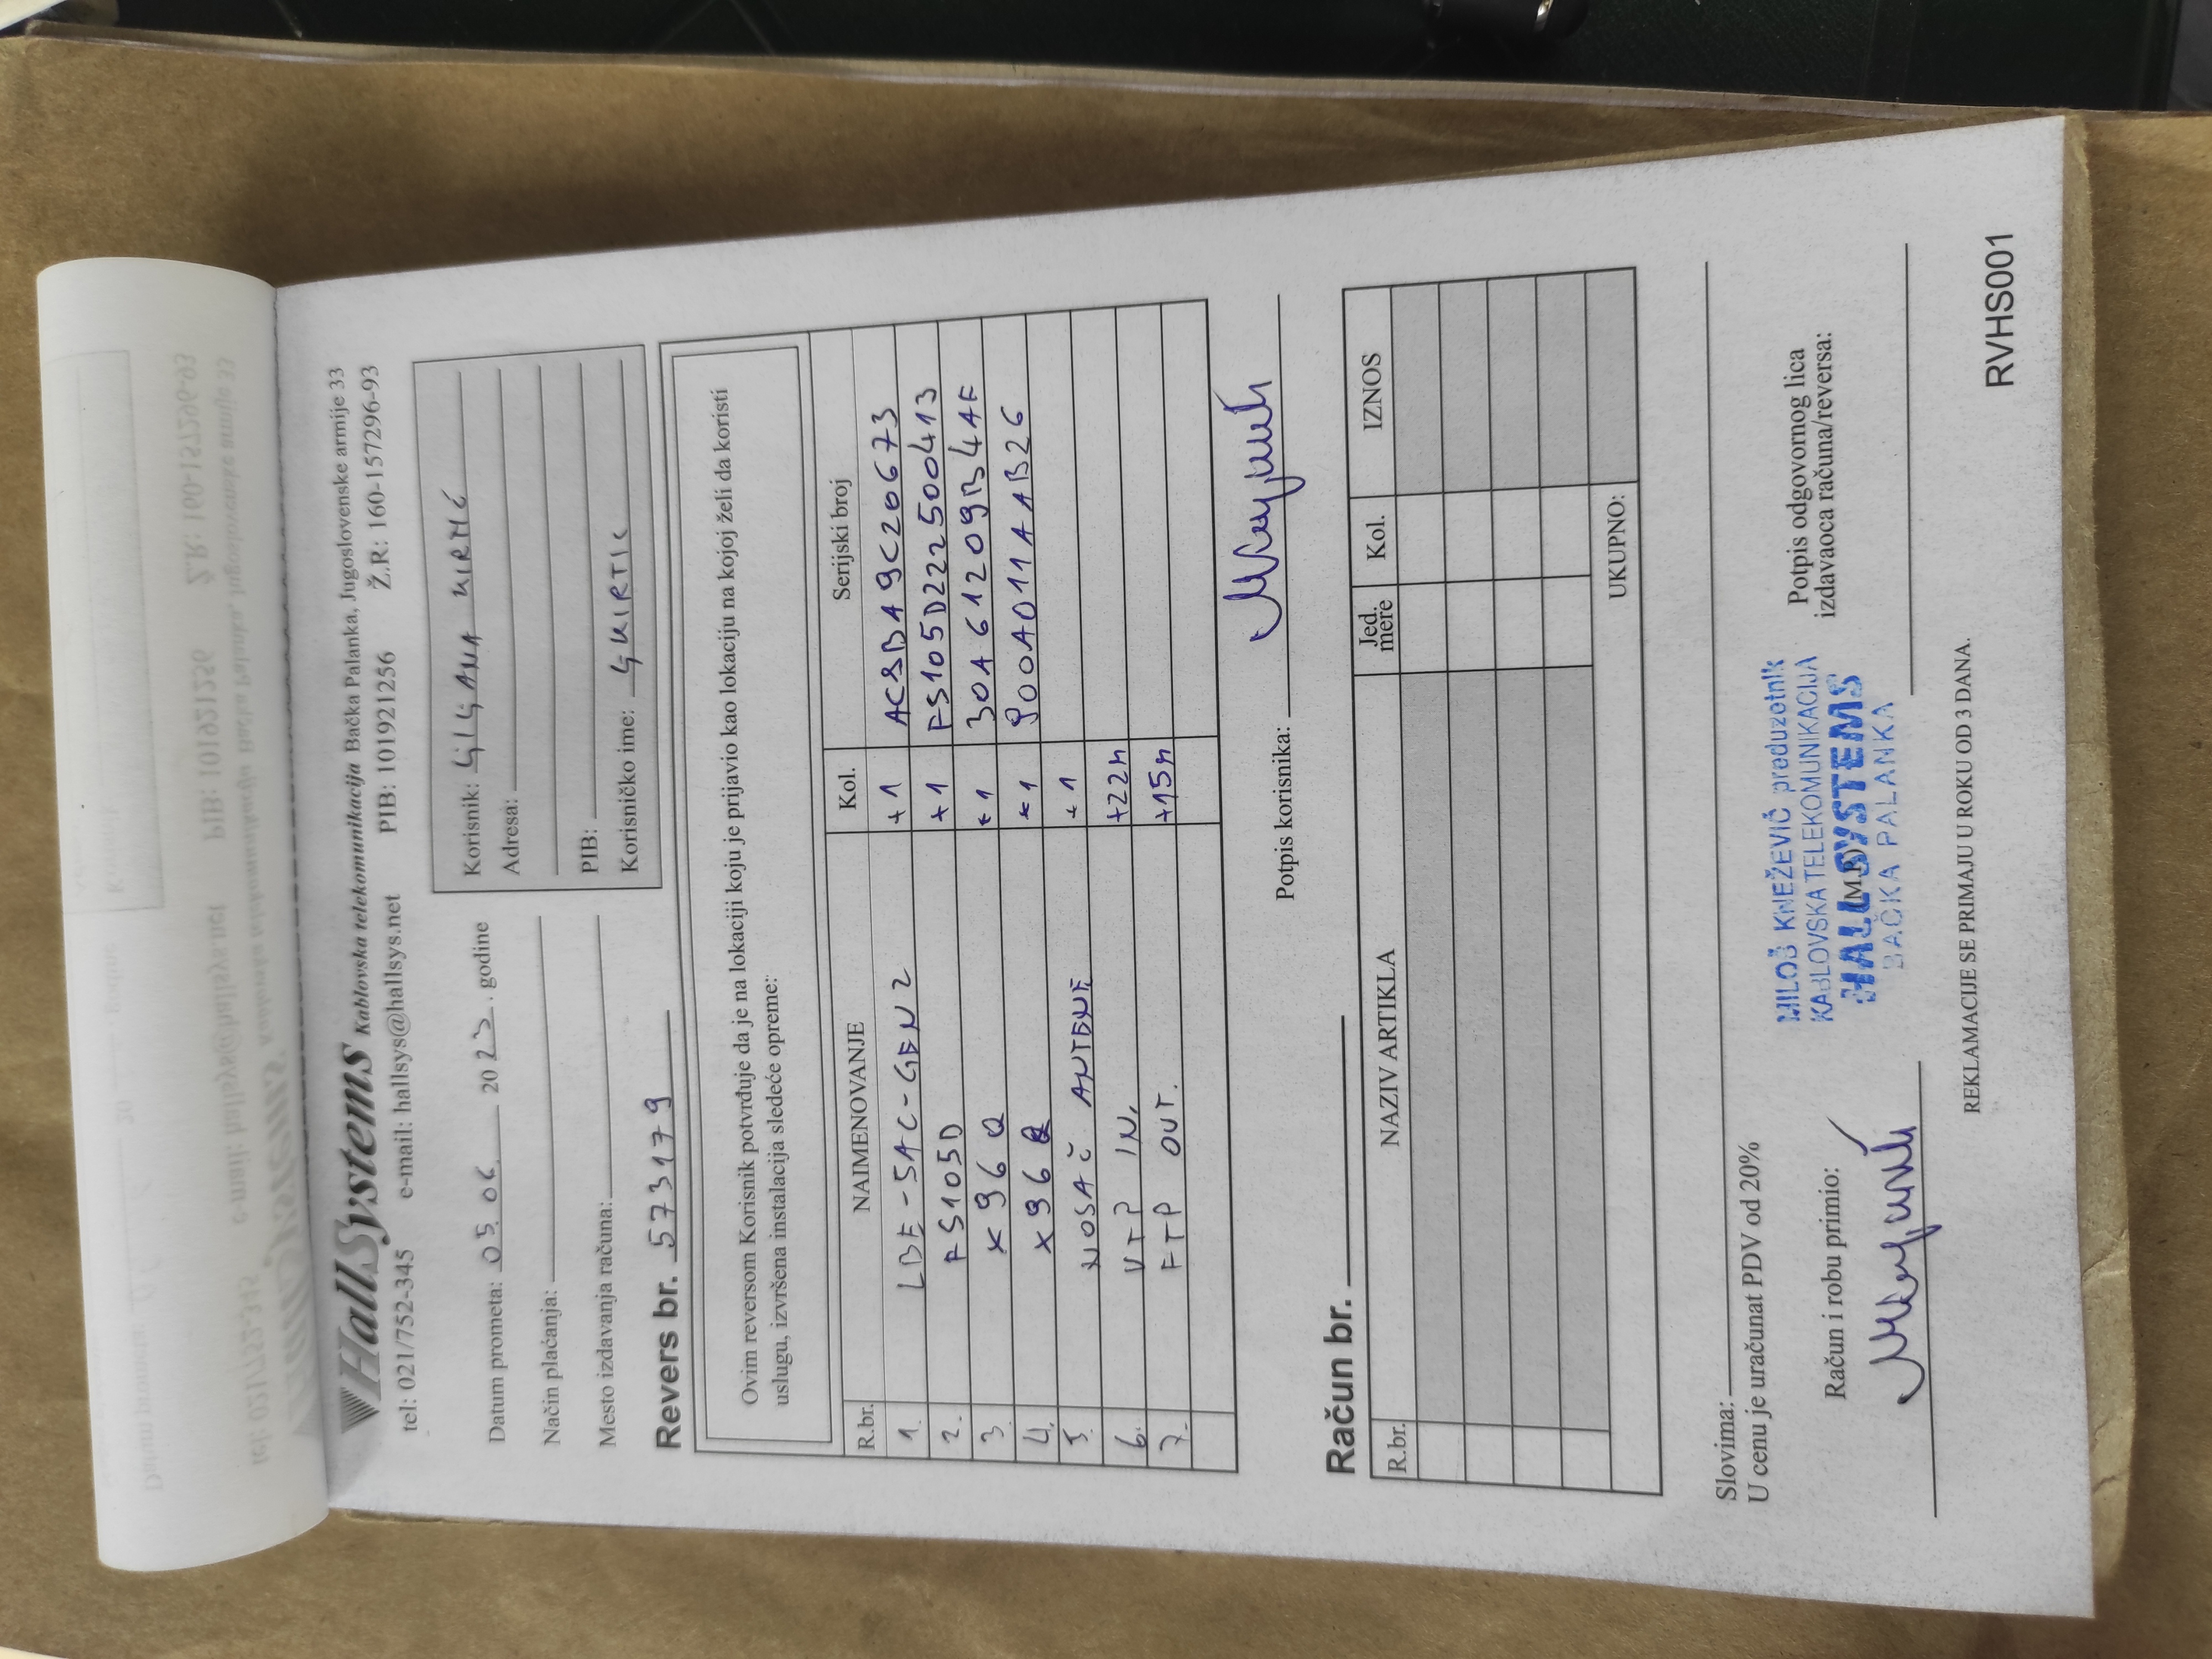 HallSystems Kablovska telekomunikacija Bačka Palanka, Jugoslovenske armije 33
tel: 021/752-345 e-mail: hallsys@hallsys.net PIB: 101921256 Ž.R: 160-157296-93
Datum prometa: 05.06. 2023. godine
Način plaćanja:
Mesto izdavanja računa:
Korisnik:
Adresa:
PIB:
Korisničko ime:
Revers br. 573179
Ovim reversom Korisnik potvrđuje da je na lokaciji koju je prijavio kao lokaciju na kojoj želi da koristi
uslugu, izvršena instalacija sledeće opreme:
R.br. NAIMENOVANJE Kol. Serijski broj
1. LBE-5AC-GEN2 +1 AC8BA9C20673
2. FS105D +1 FS105D222500413
3. X96Q +1 30A61209B44E
4. X96Q +1 900A011AAB26
5. NOSAČ ANTENE +1
6. UTP IN. +22m
7. FTP OUT. +15m
Potpis korisnika:
Račun br.
R.br. NAZIV ARTIKLA Jed. mere Kol. IZNOS
UKUPNO:
Slovima:
U cenu je uračunat PDV od 20%
Račun i robu primio:
(M.P.)
MILOŠ KNEŽEVIĆ preduzetnik
KABLOVSKA TELEKOMUNIKACIJA
HALLSYSTEMS
BAČKA PALANKA
Potpis odgovornog lica
izdavaoca računa/reversa:
REKLAMACIJE SE PRIMAJU U ROKU OD 3 DANA.
RVHS001